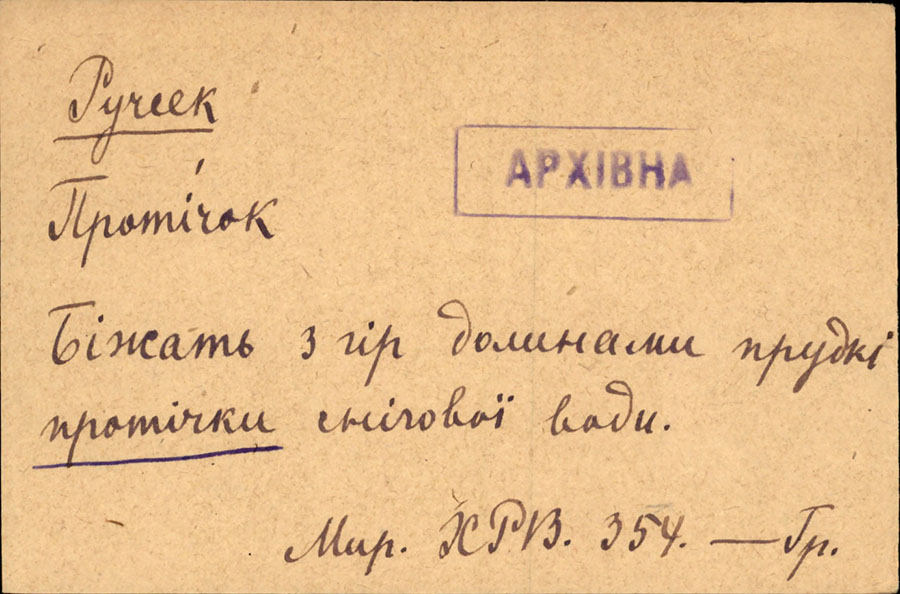 Ручеек
АРХІВНА
Проті́чок
Біжать з гір долинами прудкі
протічки снігової води.
Мир. ХРВ. 354. — Гр.